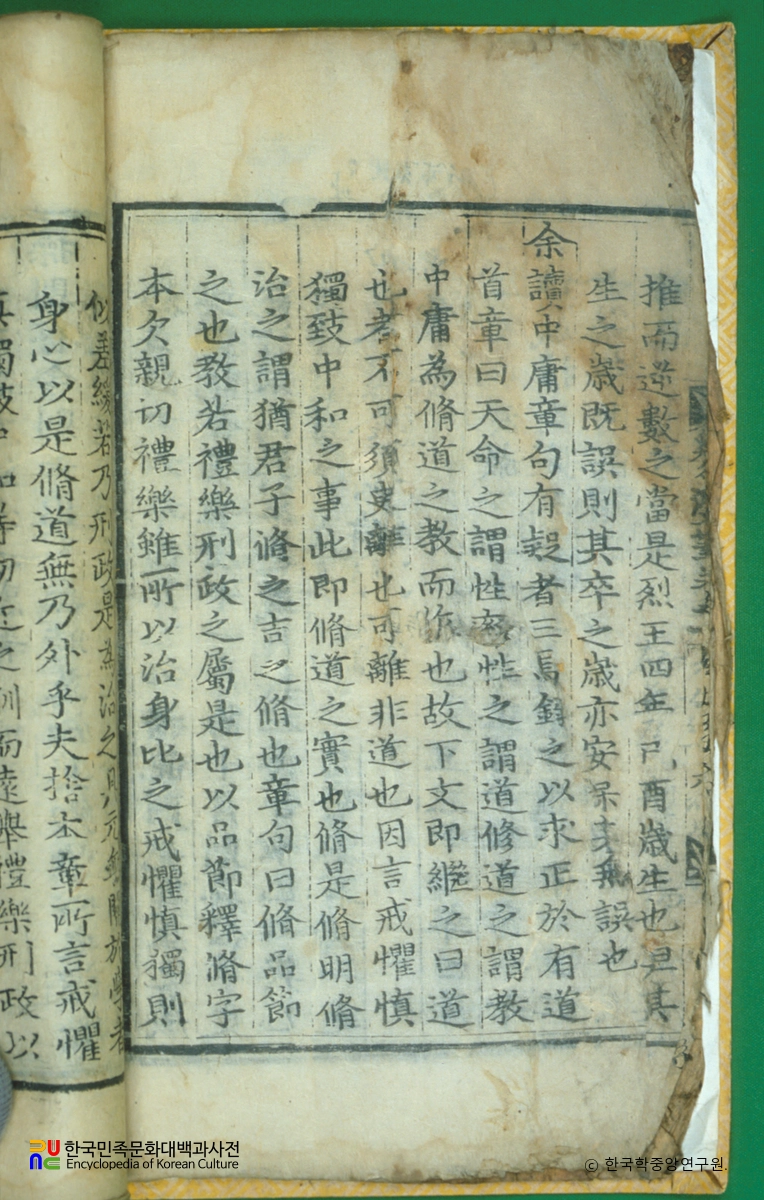 推而逆數之當是烈王四年己酉歲生也且其
生之歲既誤則其卒之歲亦安保其無誤也
余讀中庸章句有疑者三焉錄之以求正於有道
首章曰天命之謂性率性之謂道修道之謂教
中庸為脩道之教而作也故下文即繼之曰道
也者不可須臾離也可離非道也因言戒懼慎
獨致中和之事此即脩道之實也脩是脩明脩
治之謂猶君子脩之吉之脩也章句曰脩品節
之也教若禮樂刑政之屬是也以品節釋脩字
本欠親切禮樂雖所以治身比之戒懼慎獨則
似差緩若乃刑政是為治之具
身心以是脩道無乃外乎夫捨本章所言戒懼
之訓而遠舉禮樂刑政以
한국민족문화대백과사전
Encyclopedia of Korean Culture
© 한국학중앙연구원.